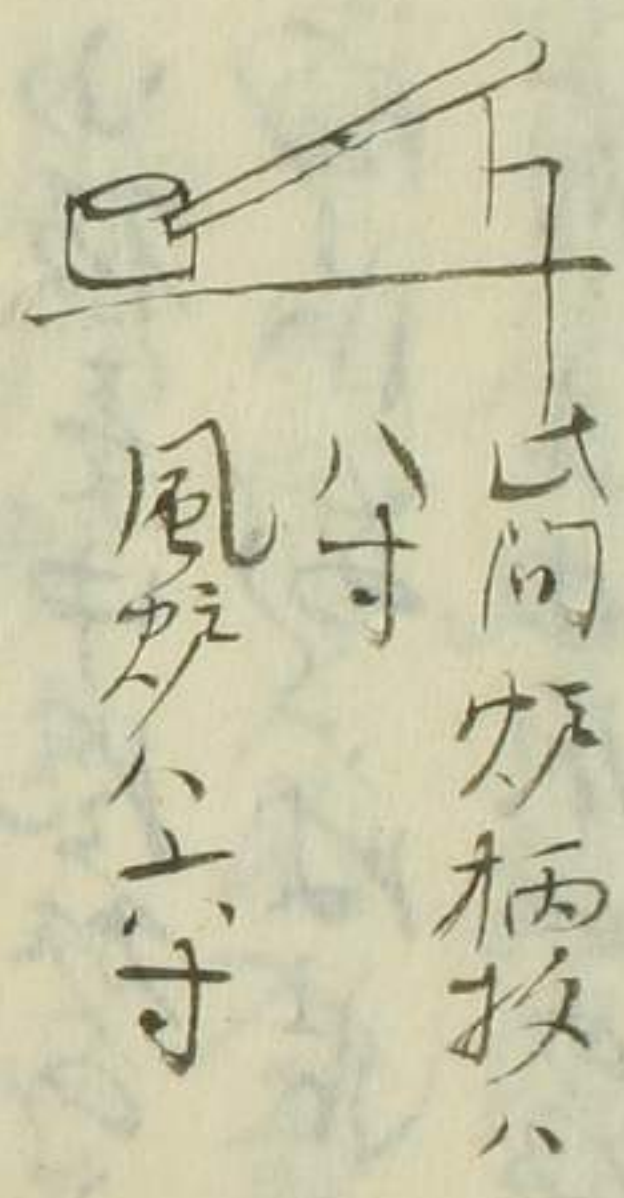 此間炉柄杓ハ
八寸
風炉ハ六寸